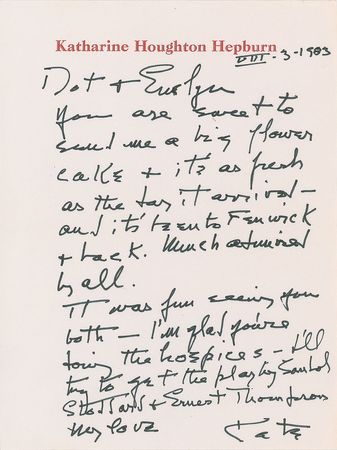 Katharine Houghton Hepburn
VIII - 3 - 1983
Dot + Evelyn
You are sweet to
send me a big flower
cake + it's as fresh
as the day it arrived -
and it's been to Fenwick
+ back. Much admired
by all.
It was fun seeing you
both - I'm glad you're
doing the hospices - I'll
try to get the play by Sandol
Stoddard + Ernest Thompson
My love Kate